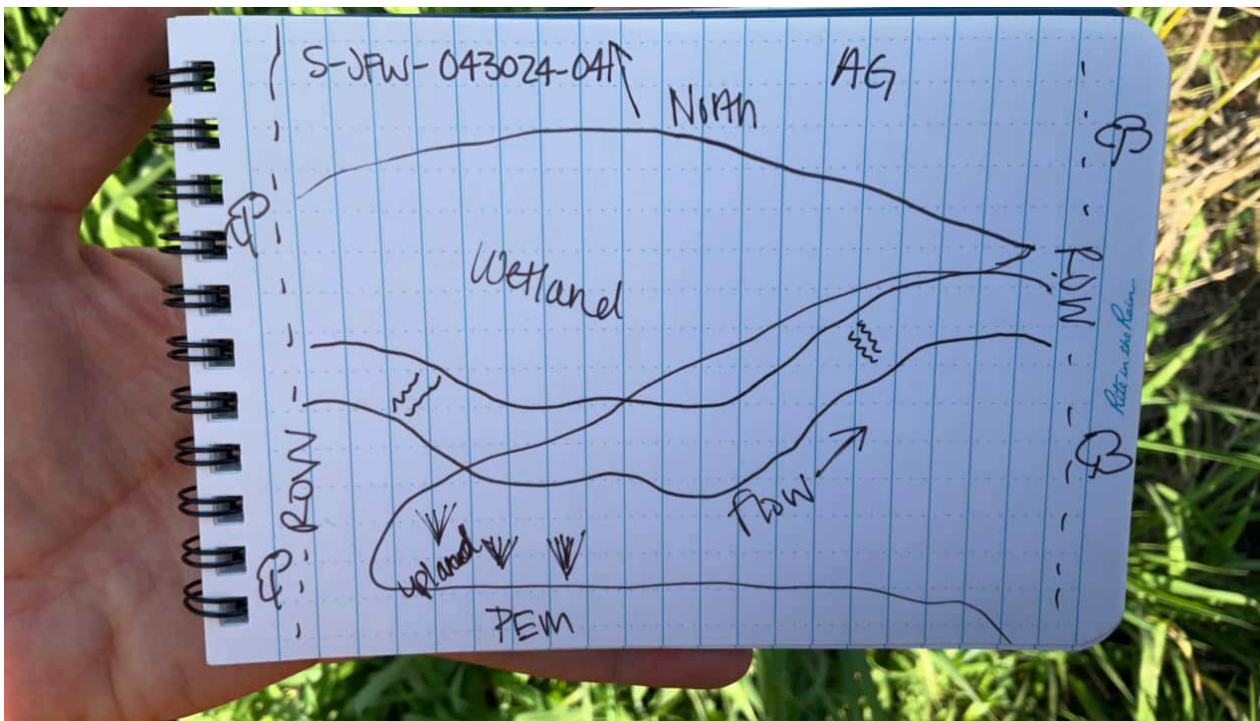 S-JFW-043024-04
AG
North
Wetland
ROW
Rite in the Rain
ROW
flow
upland
PEM